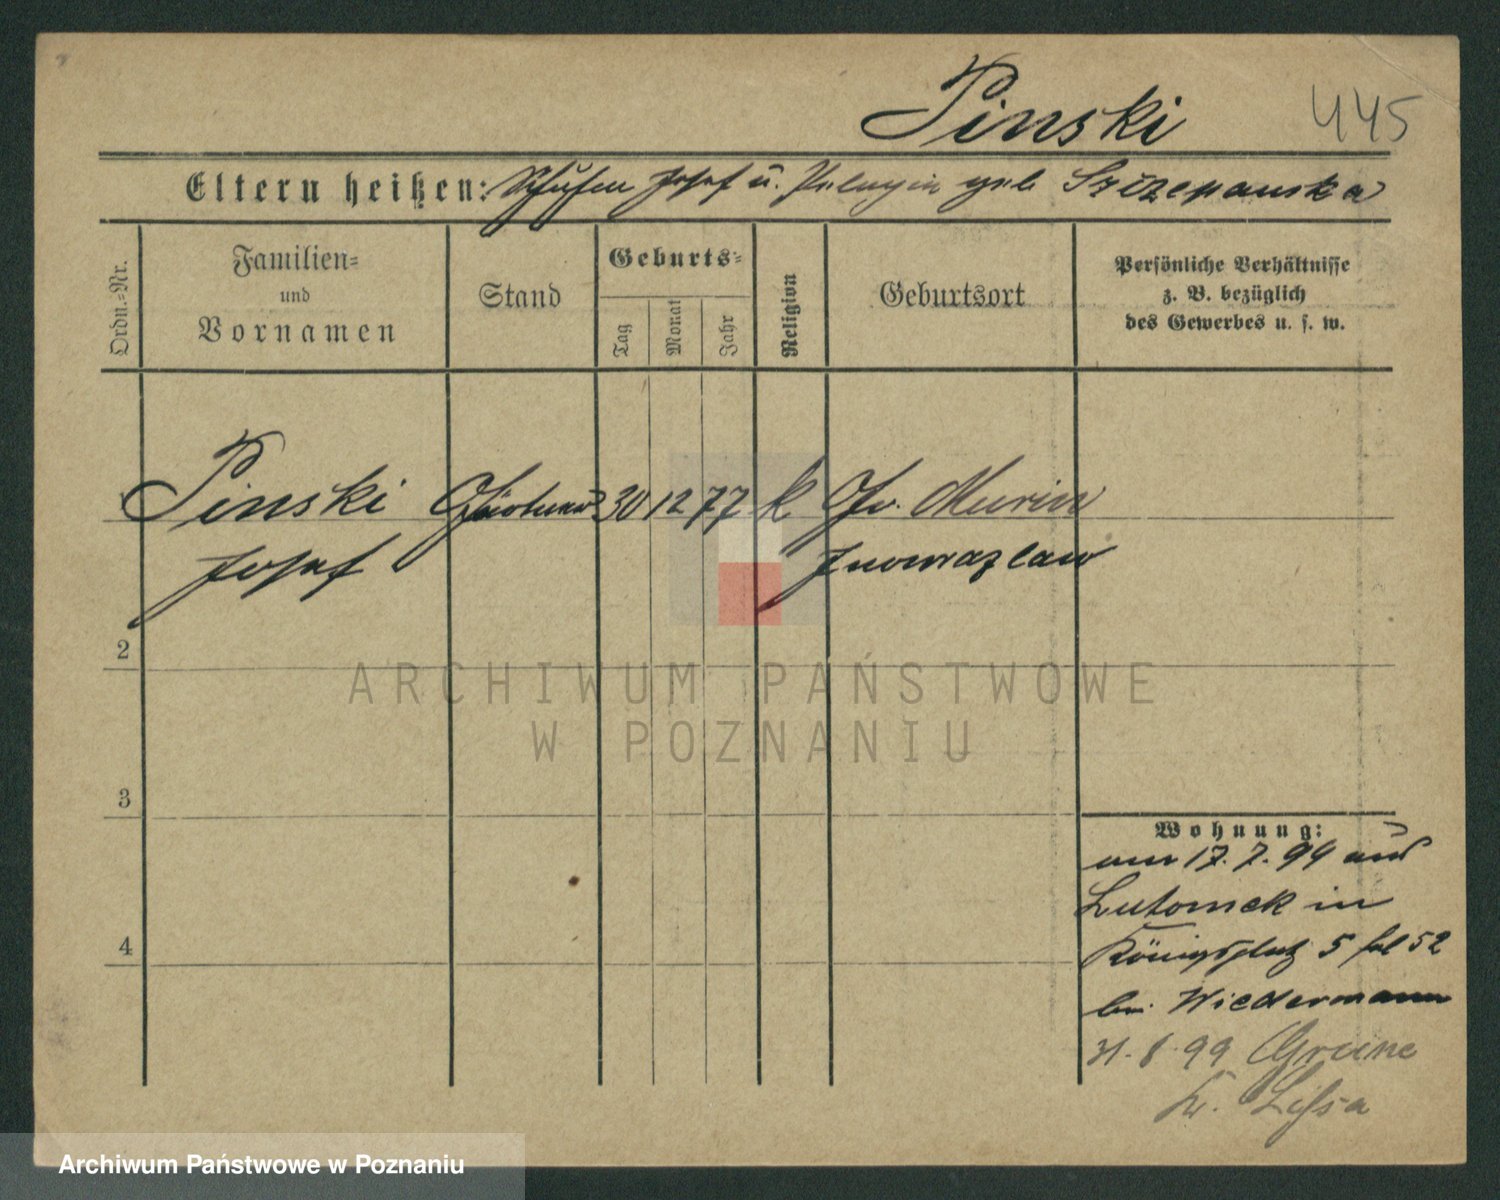 Pinski 445
Eltern heißen: Josef u. Pelagia geb Szczepanska
Ordn.=Nr.
Familien=
und
Vornamen
Stand
Geburts=
Tag
Monat
Jahr
Religion
Geburtsort
Persönliche Verhältnisse
z. B. bezüglich
des Gewerbes u. s. w.
Pinski Gärtner 30 12 77 k Gr. Murin
Josef Inowrazlaw
2
3
4
Wohnung:
am 17. 7. 99 aus
Lutomek in
Königsplatz 5 52
bei Wiedermann
31. 8. 99 Grune
Kr. Lissa
ARCHIWUM PAŃSTWOWE
W POZNANIU
Archiwum Państwowe w Poznaniu